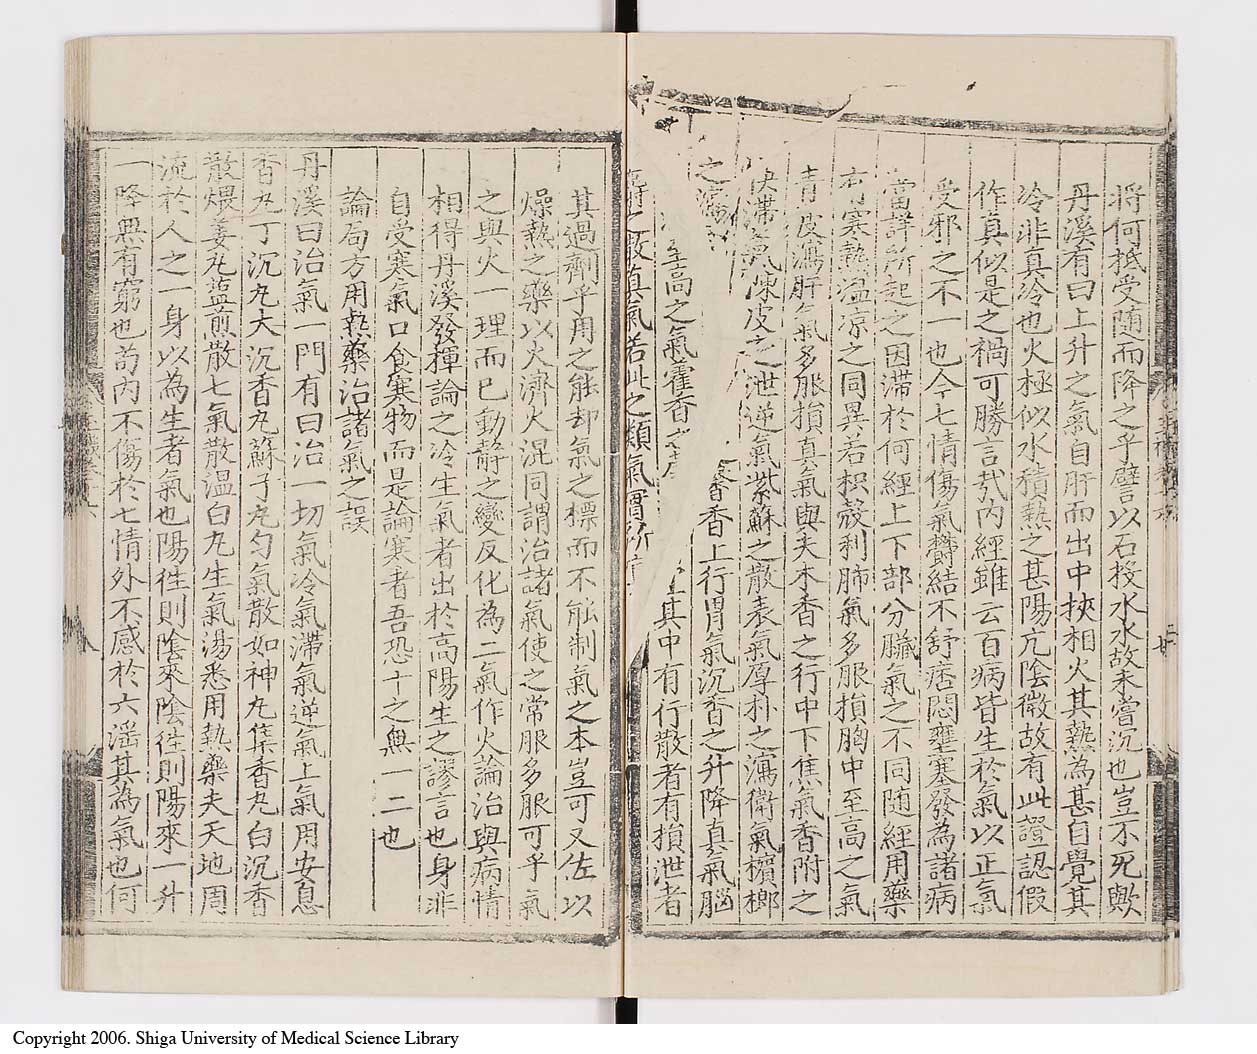 將何抵受随而降之乎譬以石投水水故未甞沉也豈不死歟
丹溪有曰上升之氣自肝而出中挾相火其熱為甚自覺其
冷非真冷也火極似水積熱之甚陽亢陰微故有此證認假
作真似是之禍可勝言㦲内經雖云百病皆生於氣以正氣
受邪之不一也今七情傷氣欝結不舒痞悶壅塞發為諸病
當詳所起之因滞於何經上下部分臟氣之不同随經用藥
有寒熱温凉之同異若枳殻利肺氣多服損胸中至高之氣
青皮瀉肝氣多服損真氣與夫木香之行中下焦氣香附之
快滞氣陳皮之泄逆氣紫蘇之散表氣厚朴之瀉衛氣檳榔
之瀉至高之氣藿香之香上行胃氣沉香之升降真氣脳
之散真氣若此之類氣實所其中有行散者有損泄者
其過劑乎用之能却氣之標而不能制氣之本豈可又佐以
燥熱之藥以火濟火混同謂治諸氣使之常服多服可乎氣
之與火一理而已動静之變反化為二氣作火論治與病情
相得丹溪發揮論之冷生氣者出於高陽生之謬言也身非
自受寒氣口食寒物而是論寒者吾恐十之無一二也
論局方用熱藥治諸氣之誤
丹溪曰治氣一門有曰治一切氣冷氣滞氣逆氣上氣用安息
香丸丁沉丸大沉香丸蘇子丸匀氣散如神丸集香丸白沉香
散煨姜丸盐煎散七氣散温白丸生氣湯悉用熱藥夫天地周
流於人之一身以為生者氣也陽徃則陰來陰徃則陽來一升
一降無有窮也苟内不傷於七情外不感於六滛其為氣也何
Copyright 2006. Shiga University of Medical Science Library